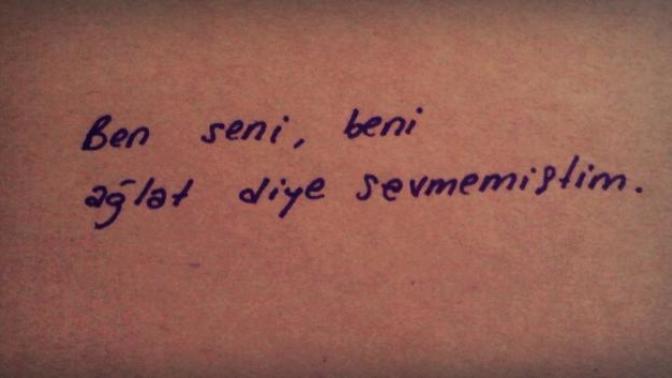 Ben seni, beni
ağlat diye sevmemiştim.